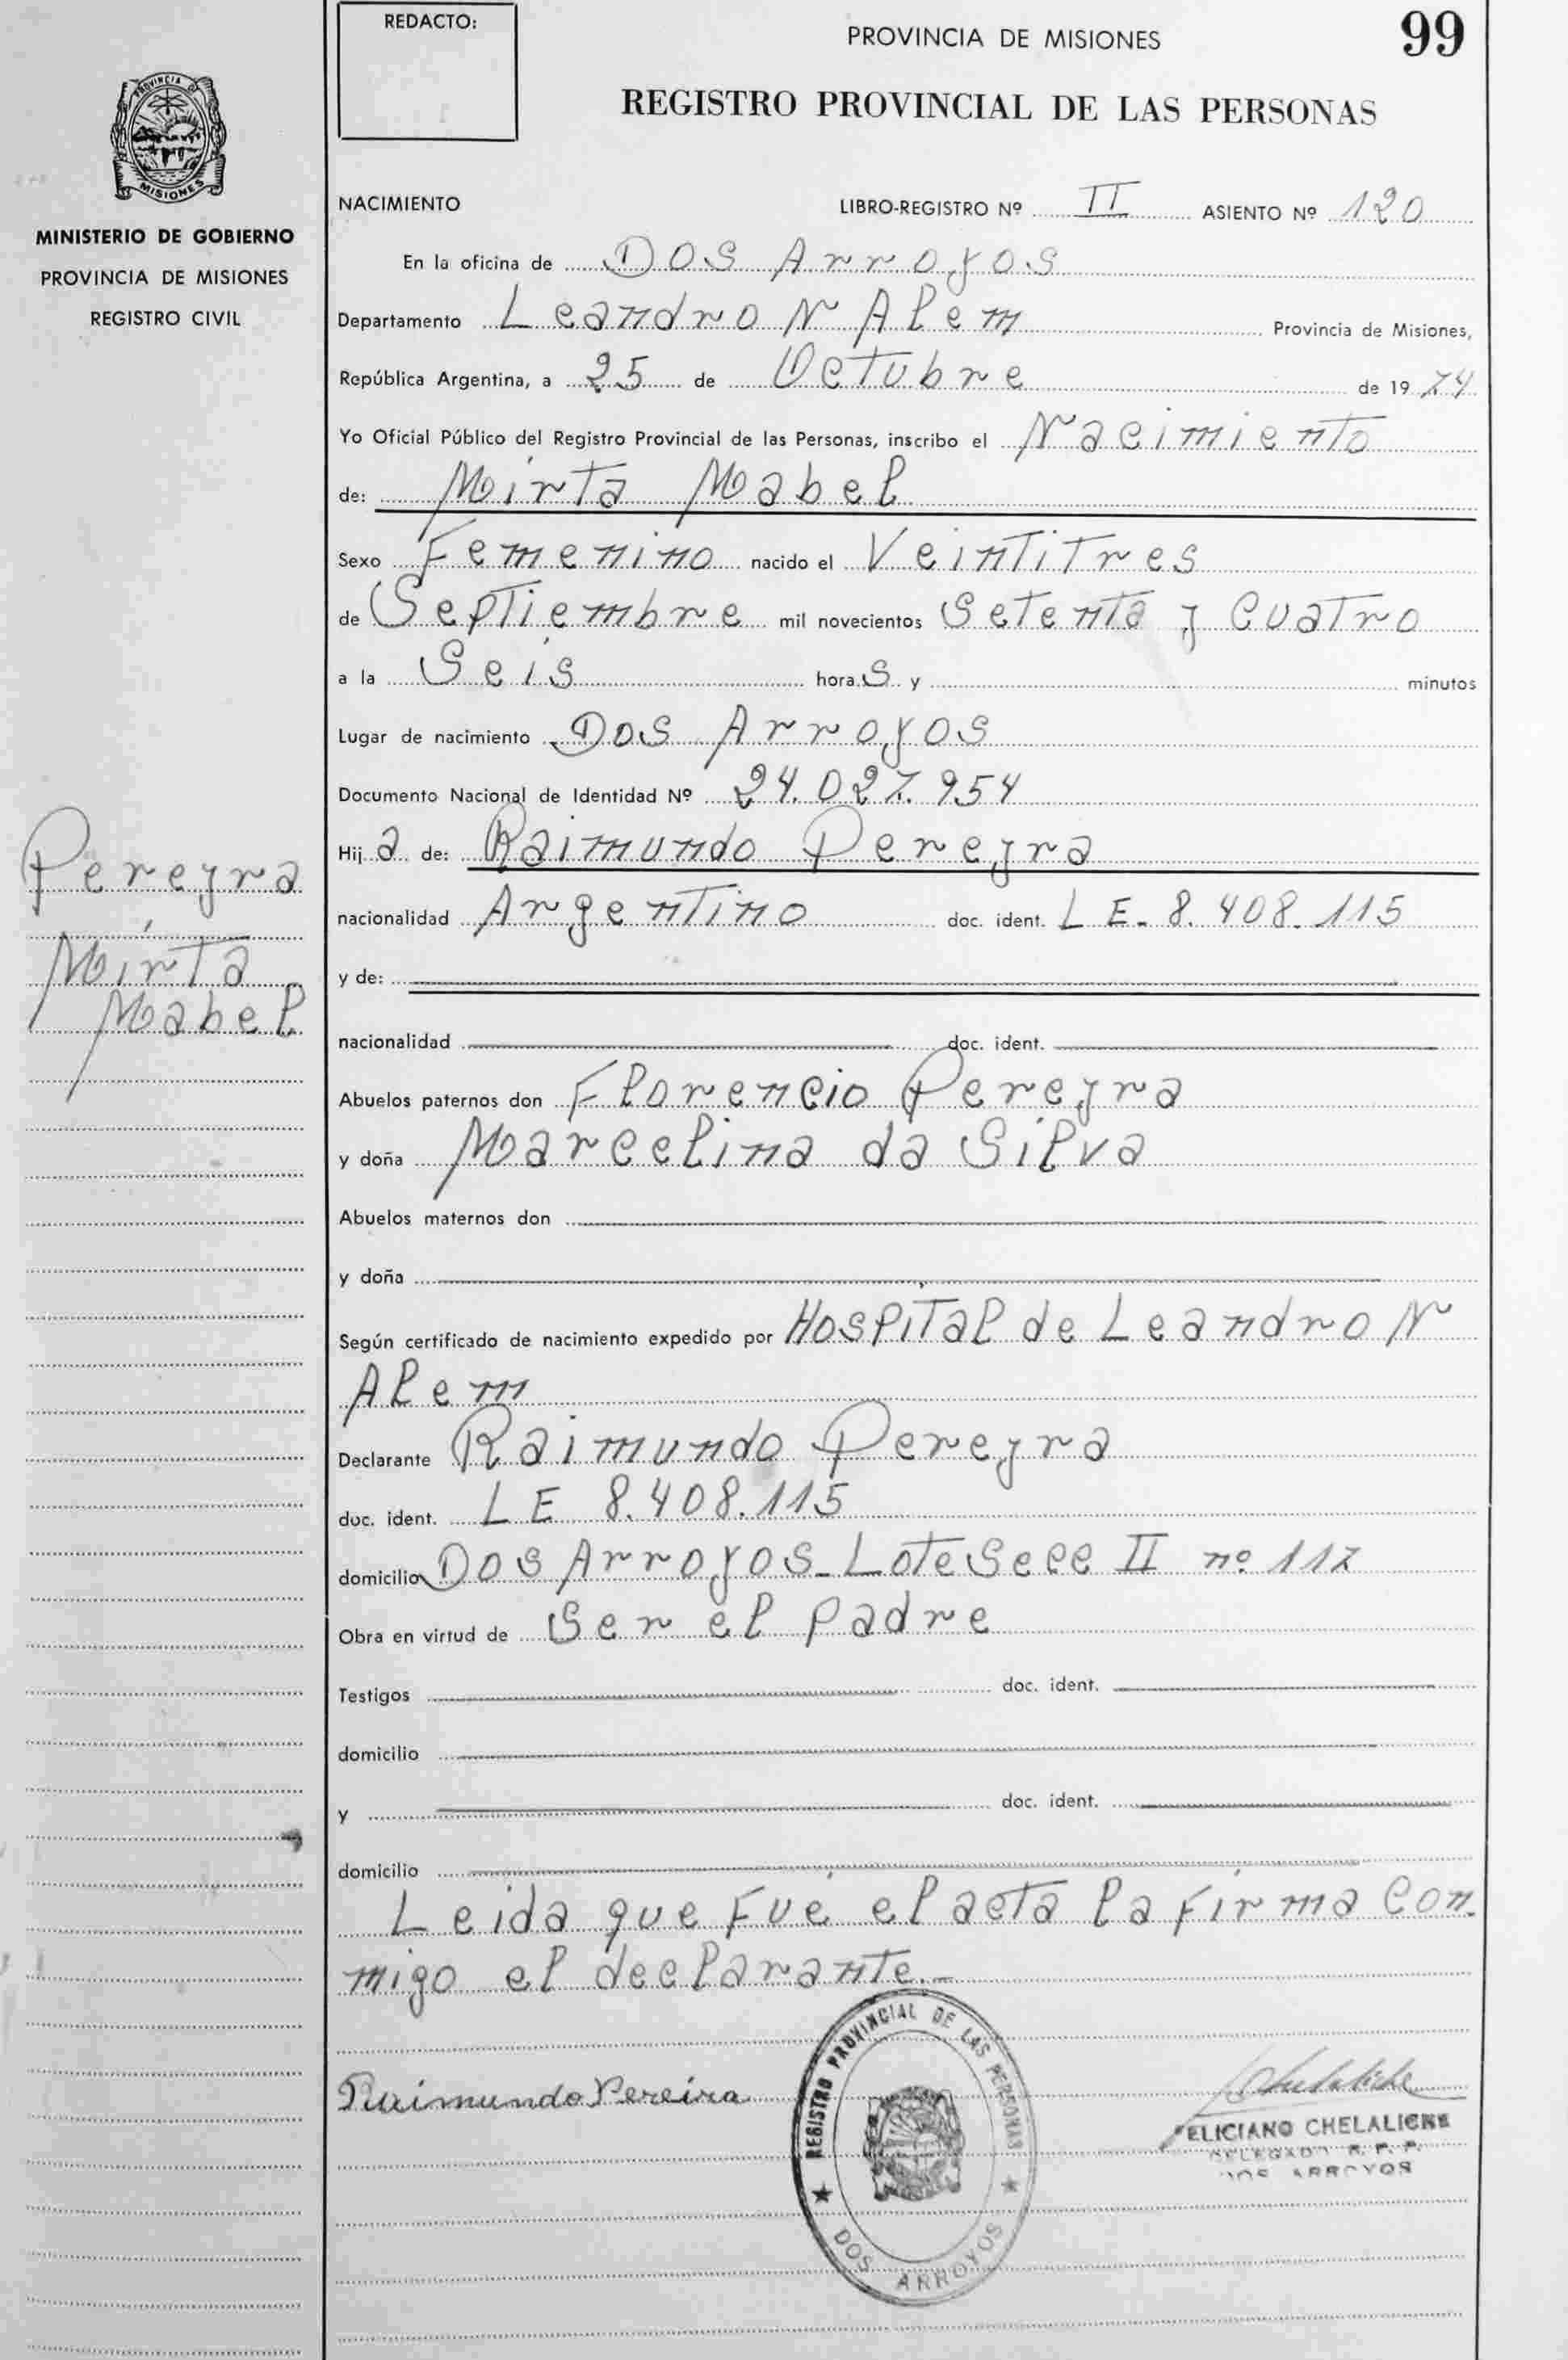 REDACTO:
PROVINCIA DE MISIONES
99
REGISTRO PROVINCIAL DE LAS PERSONAS
PROVINCIA DE
MISIONES
MINISTERIO DE GOBIERNO
PROVINCIA DE MISIONES
REGISTRO CIVIL
Pereyra
Mirta
Mabel
NACIMIENTO LIBRO-REGISTRO Nº II ASIENTO Nº 120
En la oficina de Dos Arroyos
Departamento Leandro N Alem Provincia de Misiones,
República Argentina, a 25 de Octubre de 1974
Yo Oficial Público del Registro Provincial de las Personas, inscribo el Nacimiento
de: Mirta Mabel
Sexo Femenino nacido el Veintitres
de Septiembre mil novecientos Setenta y Cuatro
a la Seis hora s y minutos
Lugar de nacimiento Dos Arroyos
Documento Nacional de Identidad Nº 24.027.954
Hij a de: Raimundo Pereyra
nacionalidad Argentino doc. ident. L E. 8.408.115
y de:
nacionalidad doc. ident.
Abuelos paternos don Florencio Pereyra
y doña Marcelina da Silva
Abuelos maternos don
y doña
Según certificado de nacimiento expedido por Hospital de Leandro N
Alem
Declarante Raimundo Pereyra
doc. ident. L E 8.408.115
domicilio Dos Arroyos_Lote Secc II nº 117
Obra en virtud de Ser el padre
Testigos doc. ident.
domicilio
y doc. ident.
domicilio
Leida que fué el acta la firma con
migo el declarante.-
Raimundo Pereira
REGISTRO PROVINCIAL DE LAS PERSONAS
DOS ARROYOS
FELICIANO CHELALICHE
DELEGADO R. P. P.
DOS ARROYOS